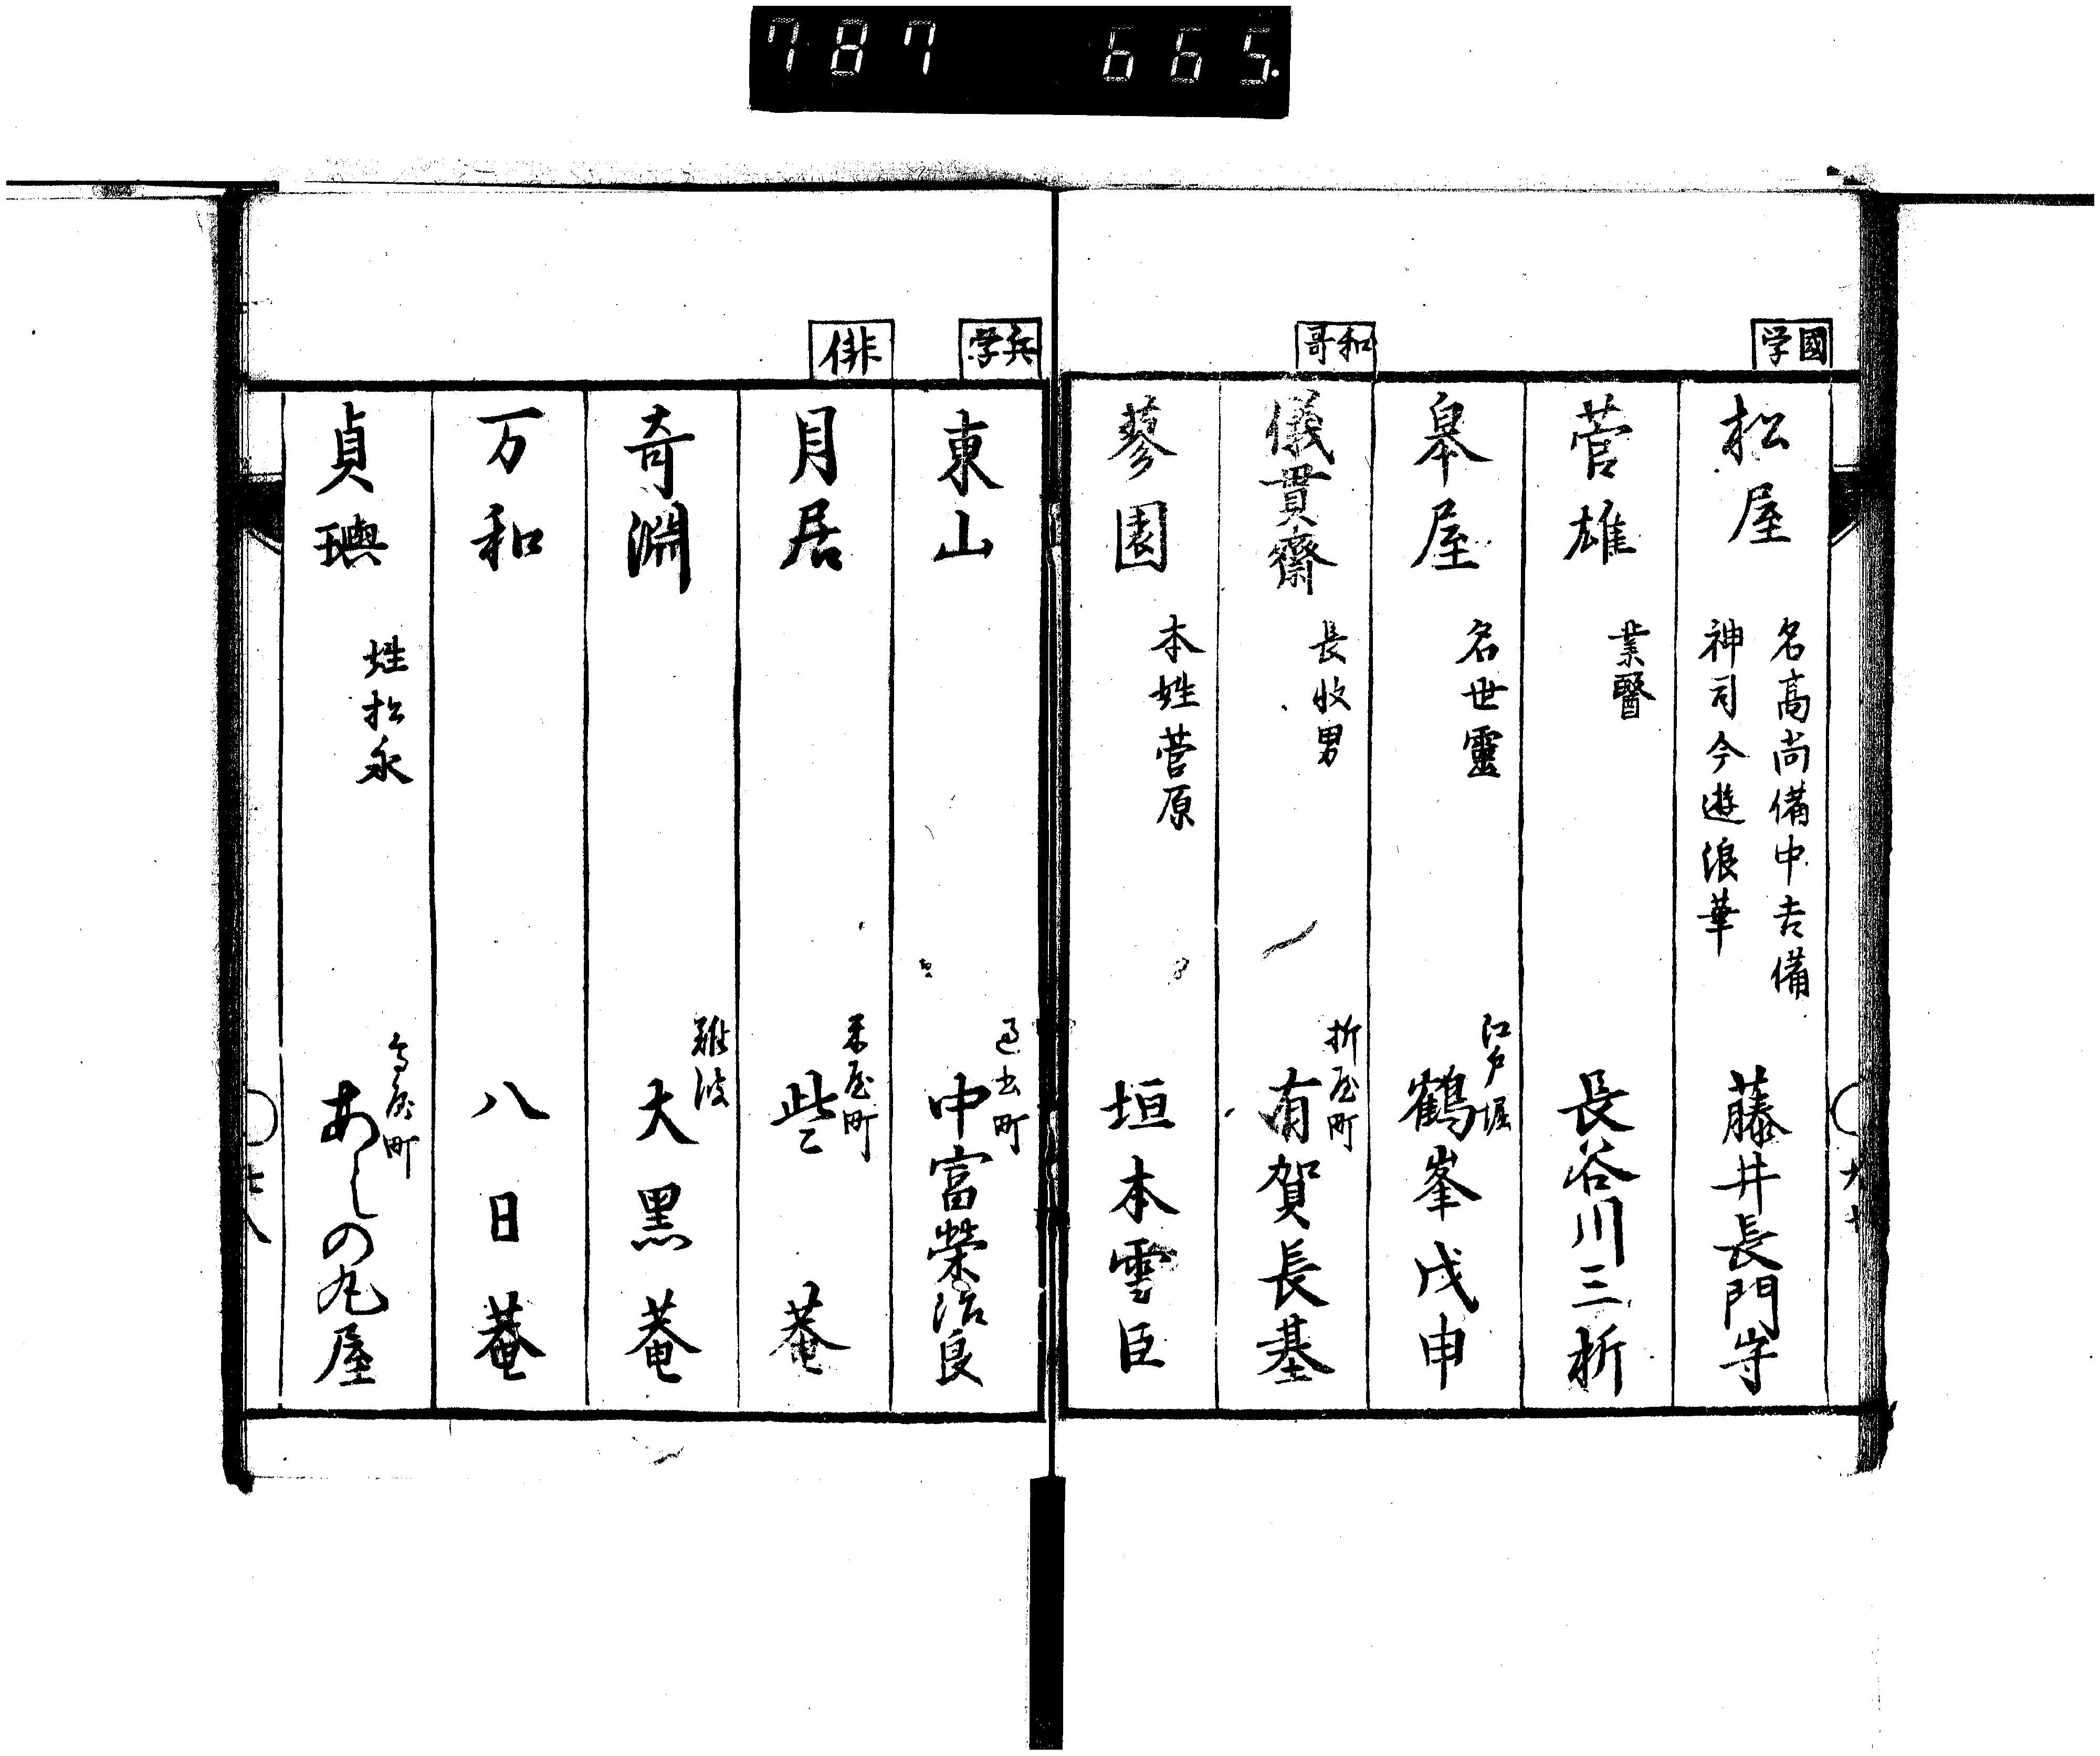 787 665.
國学
松屋
名高尚備中吉備
神司今遊浪華
藤井長門守
菅雄
業醫
長谷川三折
皋屋
名世靈
江戸堀
鶴峯戊申
和哥
儀貫齋
長收男
折屋町
有賀長基
蓼園
本姓菅原
垣本雪臣
兵学
東山
過書町
中富榮治良
俳
月居
米屋町
些々菴
奇淵
難波
大黒菴
万和
八日菴
貞璵
姓松永
屋町
あしの丸屋